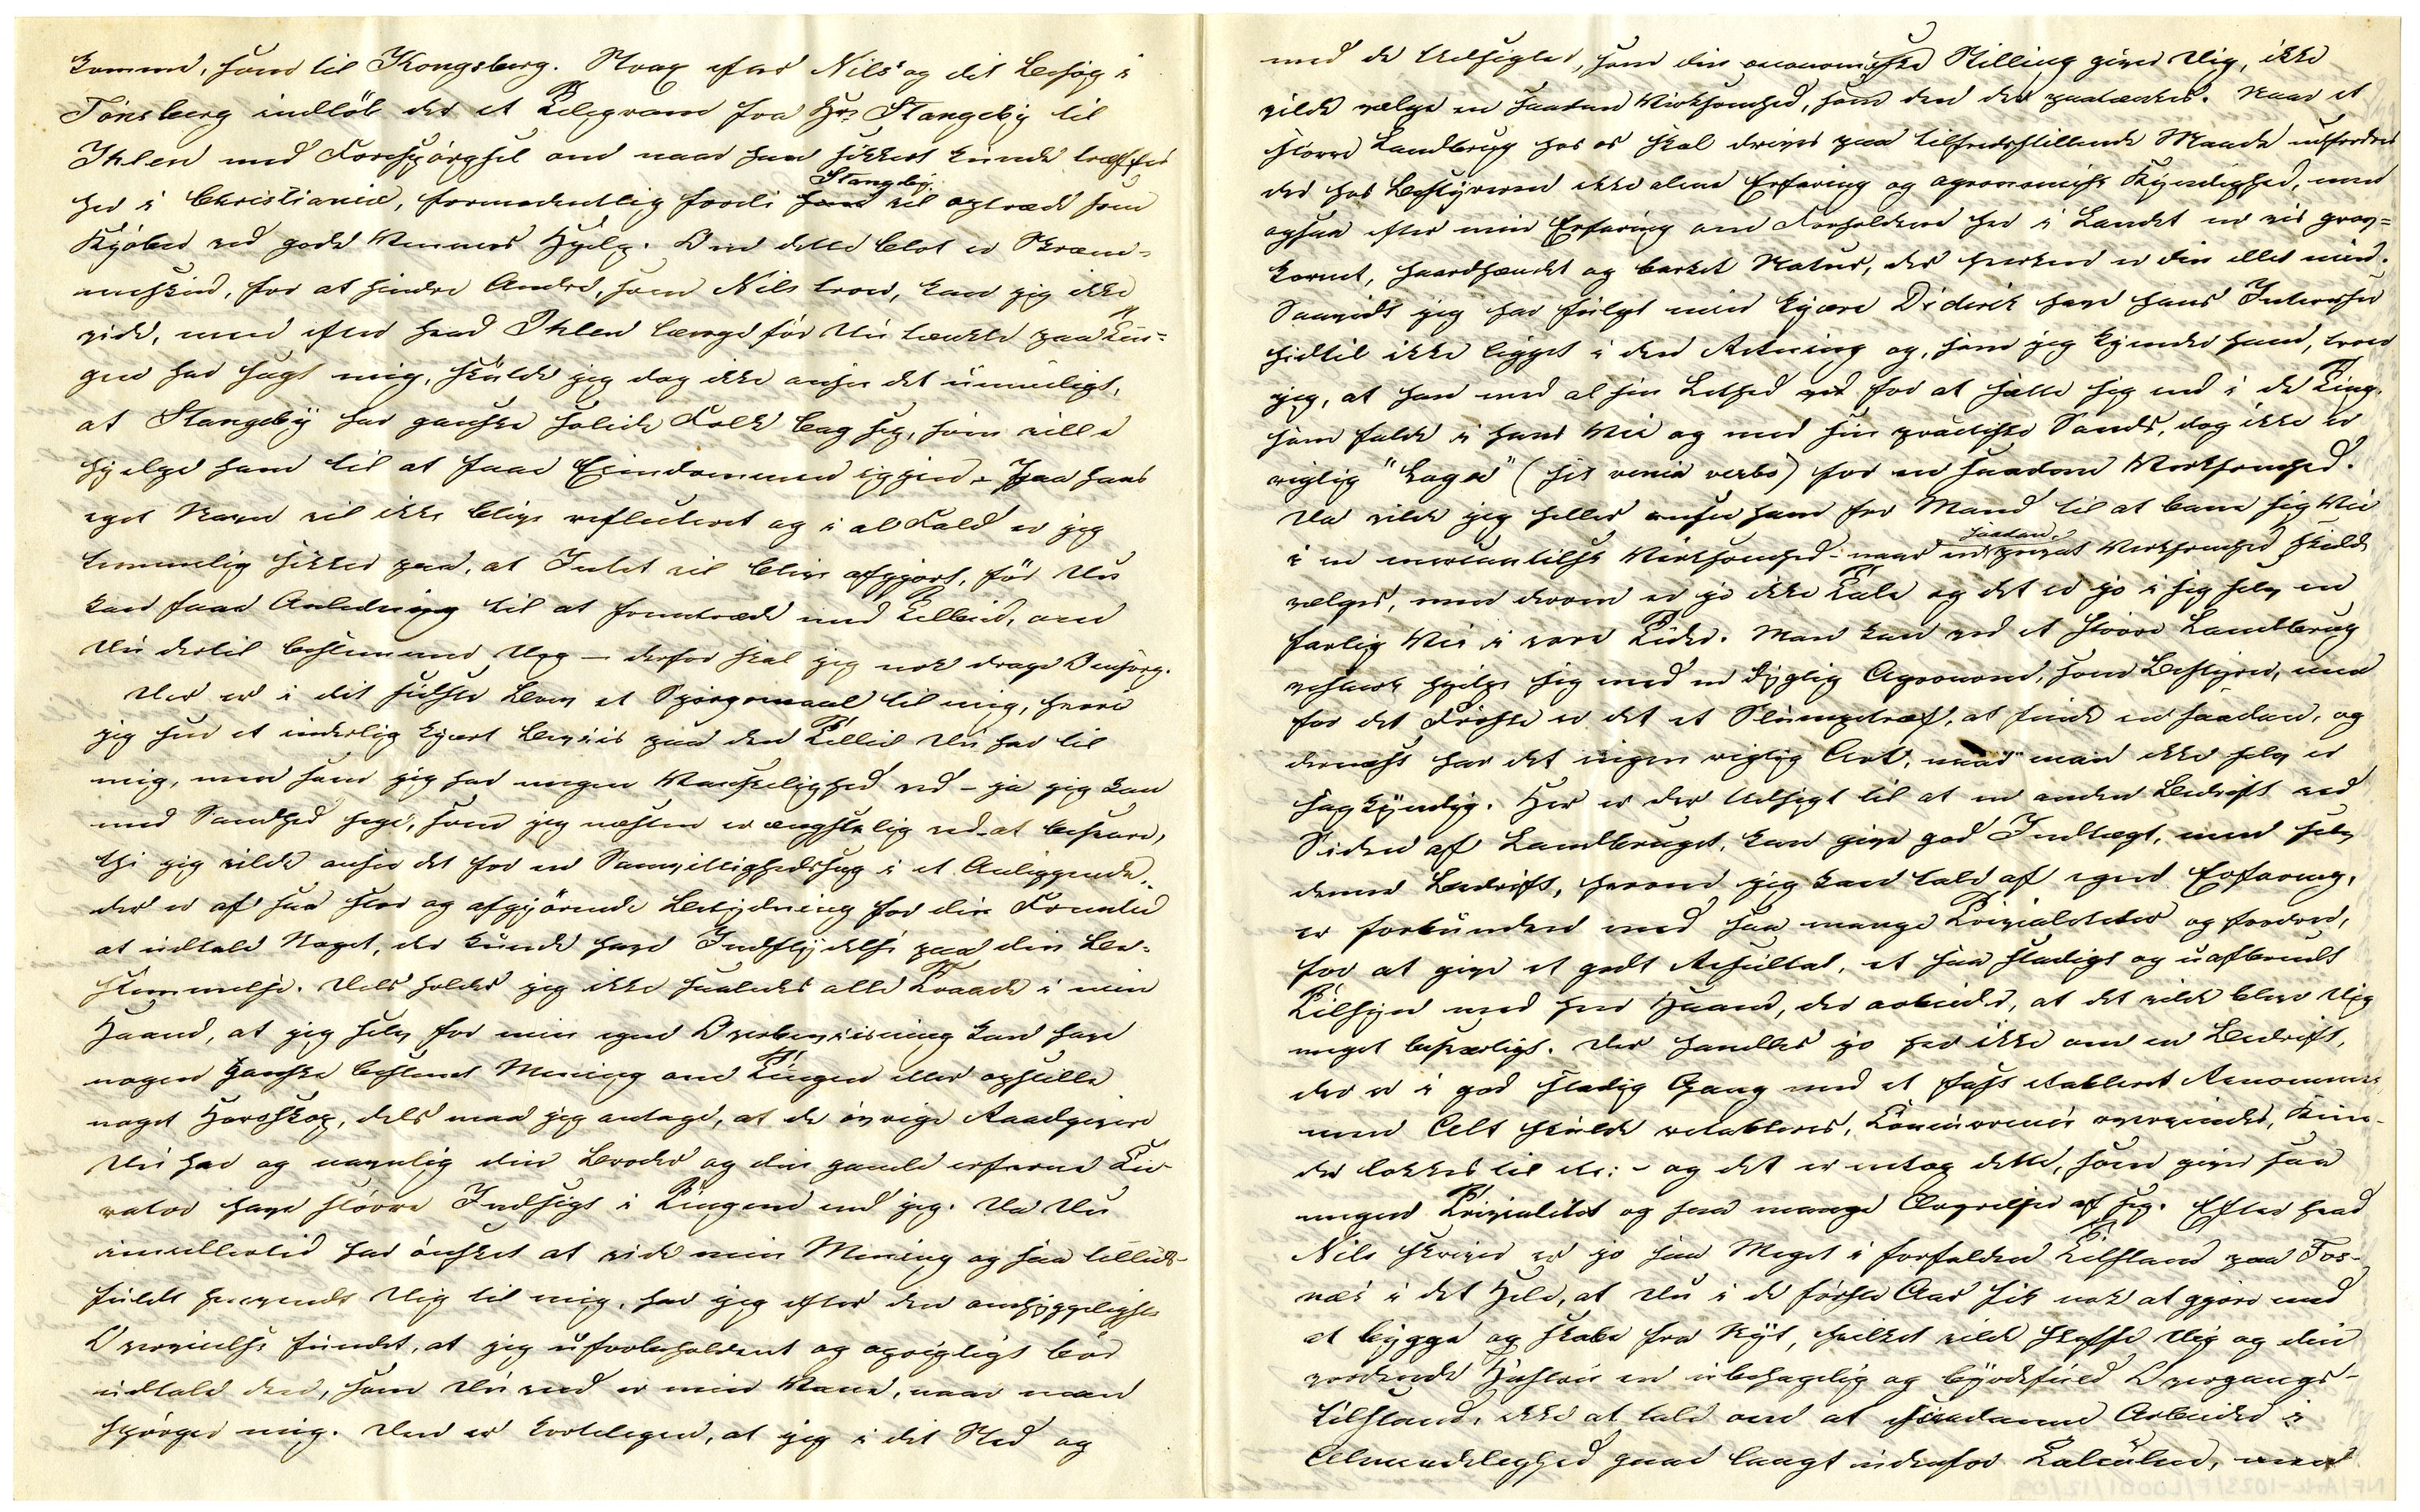 komme, som til Kongsberg. Strax efter Nils' og dit Besøg i
Tønsberg indløb der et Telegram fra Hr. Stangeby til
Ihlen med Forespørgsel om naar han sikkert kunde træffes
her i Christiania, formodentlig fordi Stangeby vil optræde som
Kjøber ved gode Venners Hjelp. Om dette blot er Skræm-
meskud, for at hindre Andre, som Nils troer, kan jeg ikke
vide, men efter hvad Ihlen længe før Du tænkte paa Tin-
gen har sagt mig, skulde jeg dog ikke ansee det umuligt,
at Stangeby har ganske solide Folk bag sig, som ville
hjelpe ham til at faae Eiendommen igjen. Paa hans
eget Navn vil ikke blive reflecteret og i al Fald er jeg
temmelig sikker paa, at Intet vil blive afgjort, før Du
kan faae Anledning til at fremtræde med Tilbud, om
Du dertil bestemmer Dig – derfor skal jeg nok drage Omsorg.
Der er i dit sidste Brev et Spørgsmaal til mig, hvori
jeg seer et inderlig kjært Beviis paa den Tillid Du har til
mig, men som jeg har megen Vanskelighed ved – ja jeg kan
med Sandhed sige, som jeg næsten er ængstelig ved at besvare,
thi jeg vilde ansee det for en Samvittighedssag i et Anliggende,
der er af saa stor og afgjørende Betydning for din Fremtid
at udtale Noget, der kunde have Indflydelse paa din Be-
stemmelse. Dels holder jeg ikke saaledes alle Traade i min
Haand, at jeg selv for min egen Overbeviisning kan have
nogen ganske bestemt Mening om Tingen eller opstille
noget Horoskop, dels maa jeg antage, at de øvrige Raadgivere
Du har og navnlig din Broder og din gamle erfarne Cu-
rator have større Indsigt i Tingene end jeg. Da Du
imidlertid har ønsket at vide min Mening og saa tillids-
fuldt henvendt Dig til mig, har jeg efter den omhyggeligste
Overveielse fundet, at jeg uforbeholdent og oprigtigt bør
udtale den, som Du veed er min Vane, naar man
spørger mig. Den er kortelegen, at jeg i dit Sted og
med de Udsigter, som din oeconomiske Stilling giver Dig, ikke
vilde vælge en saadan Virksomhed, som den der paatænkes. Naar et
større Landbrug hos os skal drives paa tilfredsstillende Maade udfordres
der hos Bestyreren ikke alene Erfaring og agronomisk Kyndighed, men
ogsaa efter min Erfaring om Forholdene her i Landet en vis grov-
kornet, haardhændet og barket Natur, der hverken er din eller min.
Saavidt jeg har fulgt min kjære Diderik have hans Interesser
hidtil ikke ligget i den Retning og, som jeg kjender ham, troer
jeg, at han med al sin Lethed for at sætte sig ind i de Ting,
som falde i hans Vei og med sin practiske Sands, dog ikke er
rigtig "Laget" (sit venia verbo) for en saadan Virksomhed.
Da vilde jeg heller ansee ham for Mand til at bane sig Vei
i en mercantilsk Virksomhed – naar saadan privat Virksomhed skulde
vælges, men derom er jo ikke Tale og det er jo i sig selv en
farlig Vei i vore Tider. Man kan ved et større Landbrug
vistnok hjelpe sig med en dygtig Agronom, som Bestyrer, men
for det Første er det et Slumpetræf, at finde en saadan, og
dernæst har det ingen rigtig Art, naar man ikke selv er
sagkyndig. Her er der Udsigt til at en anden Bedrift ved
Siden af Landbruget, kan give god Indtægt, men selv
denne Bedrift, hvorom jeg kan tale af egen Erfaring,
er forbunden med saa mange Trivialiteter og fordrer,
for at give et godt Resultat, et saa stadigt og uafbrudt
Tilsyn med hver Haand, der arbeider, at det vilde blive Dig
meget besværligt. Der handles jo her ikke om en Bedrift,
der er i god stadig Gang med et fast etableret Renommee
men Alt skulde retableres, Concurrence overvindes, Kun-
der lokkes til etc: – og det er netop dette, som giver saa
megen Trivialitet og saa mange Ærgrelser af sig. Efter hvad
Nils skriver er jo saa Meget i forfalden Tilstand paa Fos-
næs i det Hele, at Du i de første Aar fik nok at gjøre med
at bygge og skabe fra Nyt, hvilket vilde skaffe Dig og din
vordende Hustru en ubehagelig og byrdefuld Overgangs-
tilstand, ikke at tale om at saadanne Arbeider i
Almindelighed gaae langt udenfor Calculen, men